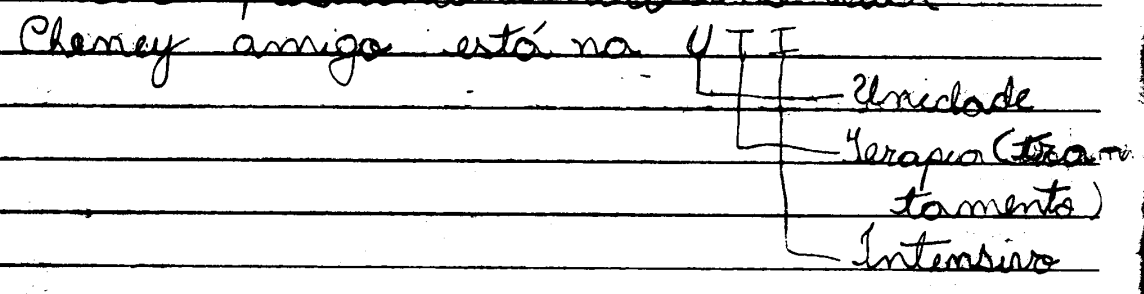 Cheney amigo está na UTI
Unidade
Terapia (tra
tamento)
Intensivo